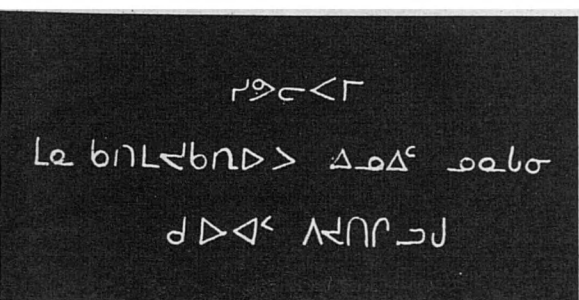 ᓯᕗᓕᐸᒥ
ᒪᓇ ᑲᑎᒪᔪᑲᑎᐅ ᐳ ᐃᓄᐃᑦ ᓄᓇᒐᓂ
ᑯ ᐅ ᐊᑉ ᐱᔪᑎᒋᓗᒍ